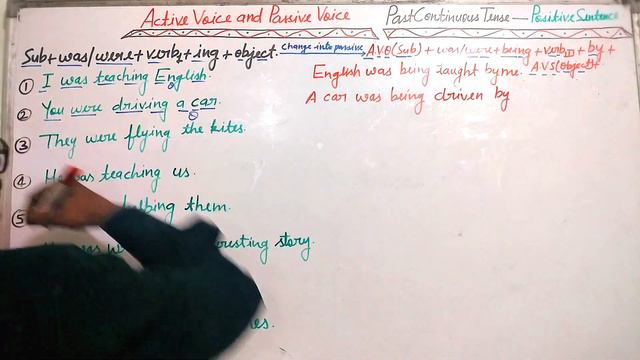 Active Voice and Passive Voice
Past Continuous Tense — Positive Sentence
Sub + was/were + verb1 + ing + object. change into passive → A.V.O(Sub) + was/were + being + verbIII + by +
A.V.S(Object)
① I was teaching English.
English was being taught by me.
② You were driving a car.
A car was being driven by
③ They were flying the kites.
④ He was teaching us.
⑤ them.
story.